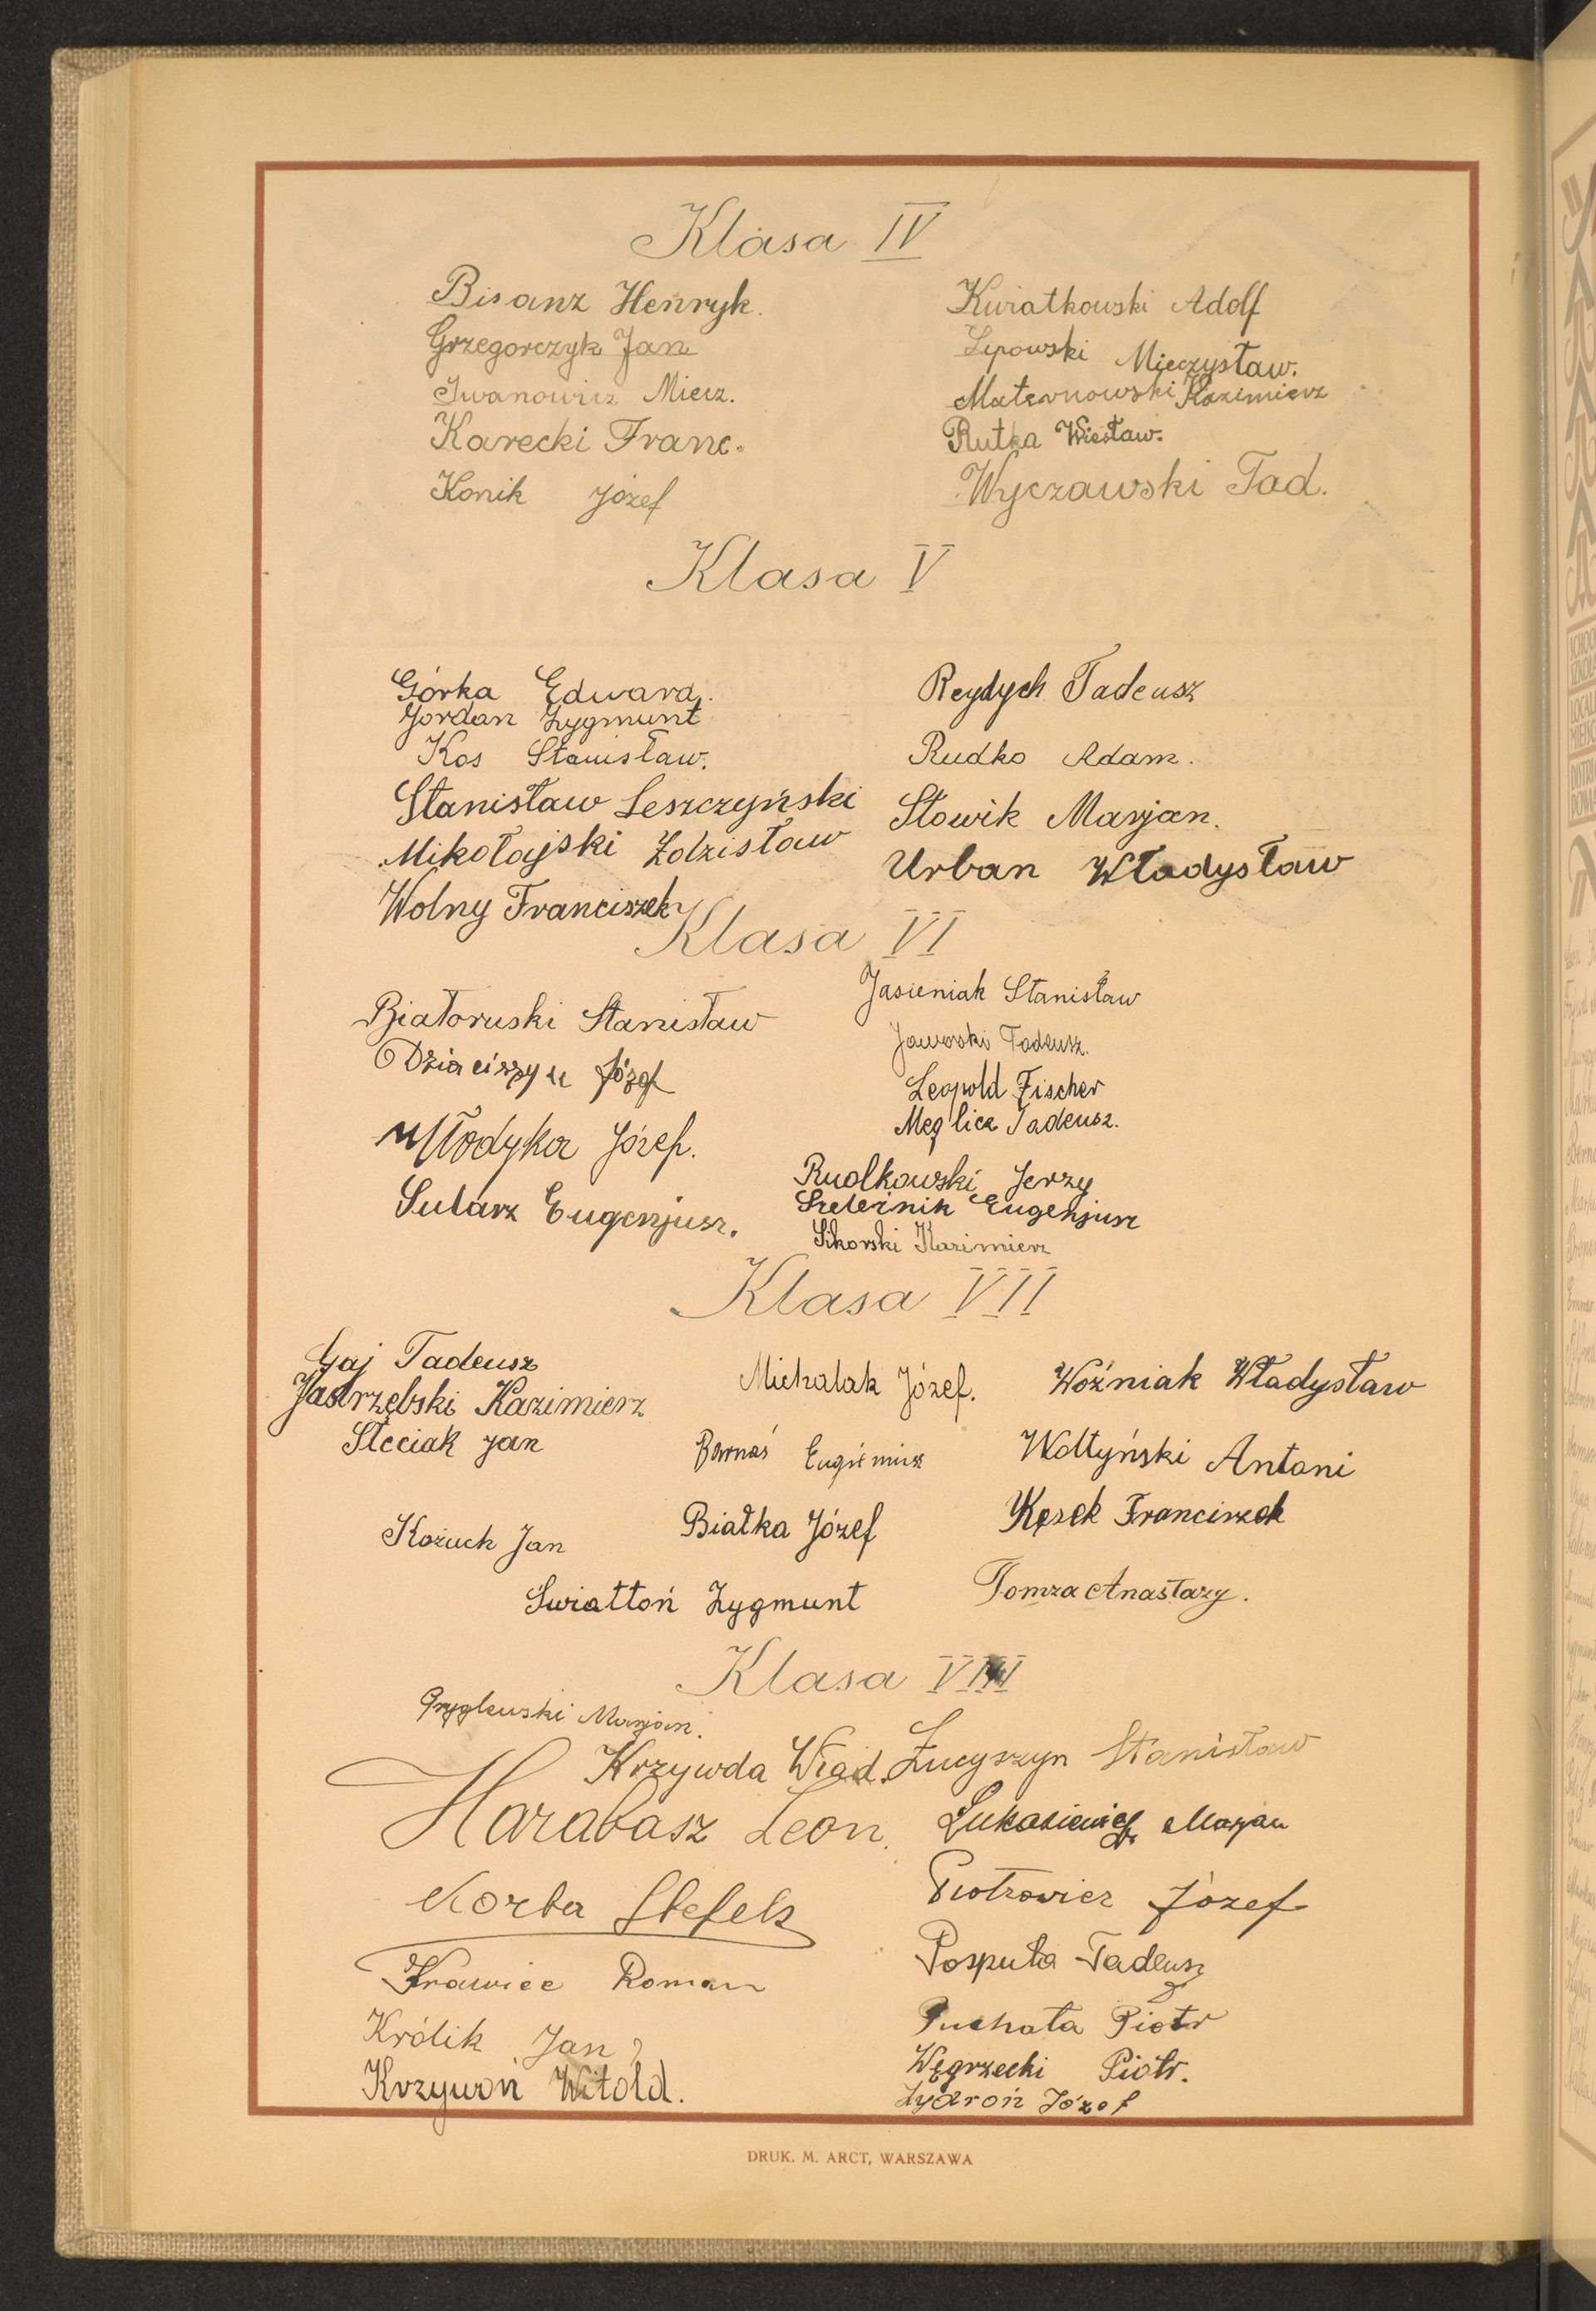 Klasa IV
Bisanz Henryk.
Grzegorczyk Jan
Iwanowicz Miecz.
Karecki Franc.
Konik Józef
Kwiatkowski Adolf
Lipowski Mieczysław.
Maternowski Kazimierz
Rutka Wiesław.
Wyczawski Tad.
Klasa V
Górka Edward.
Jordan Zygmunt
Kos Stanisław.
Stanisław Leszczyński
Mikołajski Zdzisław
Wolny Franciszek
Reydych Tadeusz
Rudko Adam.
Słowik Marjan.
Urban Władysław
Klasa VI
Białoruski Stanisław
Józef
Młodyka Józef.
Sularz Eugenjusz.
Jasieniak Stanisław
Jaworski Tadeusz.
Leopold Fischer
Meglicz Tadeusz.
Rudkowski Jerzy
Szeleźnik Eugenjusz
Sikorski Kazimierz
Klasa VII
Gaj Tadeusz
Jastrzębski Kazimierz
Steciak Jan
Kożuch Jan
Światłoń Zygmunt
Michalak Józef.
Barnaś
Białka Józef
Woźniak Władysław
Wołtyński Antoni
Kęsek Franciszek
Tomza Anastazy.
Klasa VIII
Gryglewski Marjan.
Krzywda Wład.
Harabasz Leon.
Korba
Krawiec Roman
Królik Jan
Krzywoń Witold.
Łucyszyn Stanisław
Łukasiewicz Marjan
Piotrowicz Józef
Posputa Tadeusz
Puchała Piotr
Węgrzecki Piotr.
Zydroń Józef
DRUK. M. ARCT, WARSZAWA